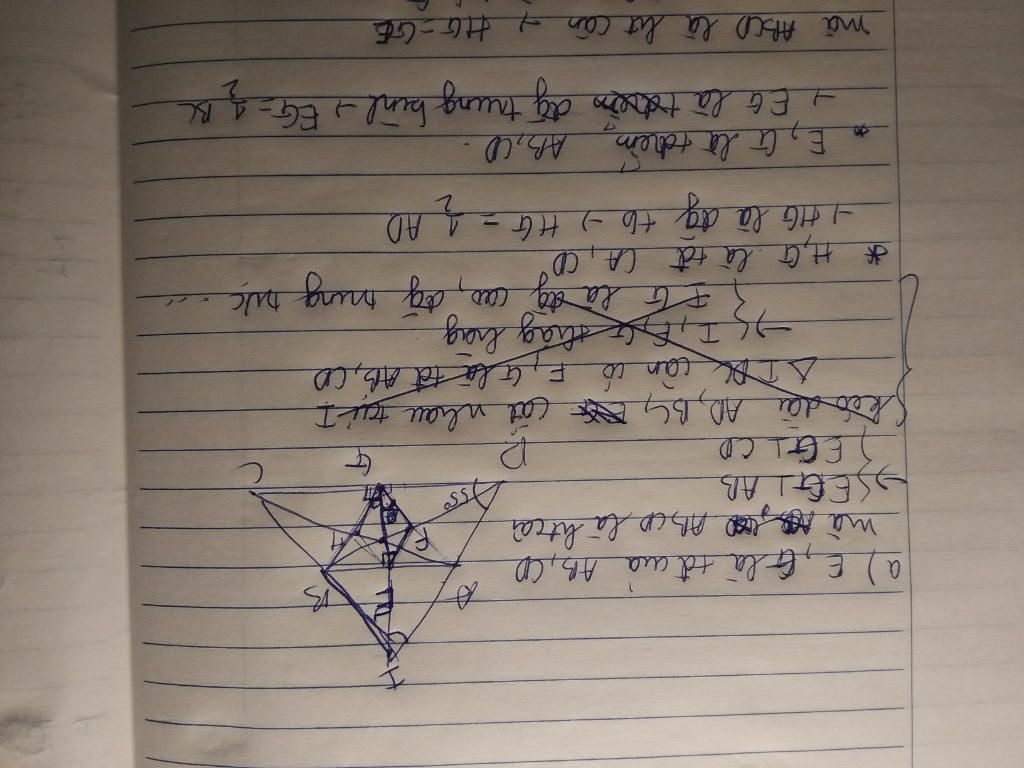 I
A
B
F
H
55°
D
G
C
a) E, G là tđ của AB, CD
mà ABCD là htcâ
→ { EG ⊥ AB
EG ⊥ CD
kéo dài AD, BC, cắt nhau tại I
Δ IDC cân có E, G là tđ AB, CD
→ { I, E, G thẳg hàg
IG là đg cao, đg trung trực ...
* H, G là tđ CA, CD
→ HG là đg tb → HG = 1/2 AD
* E, G là AB, CD.
→ EG là đg trung bình → EG = 1/2 BC
mà ABCD là cân → HG =